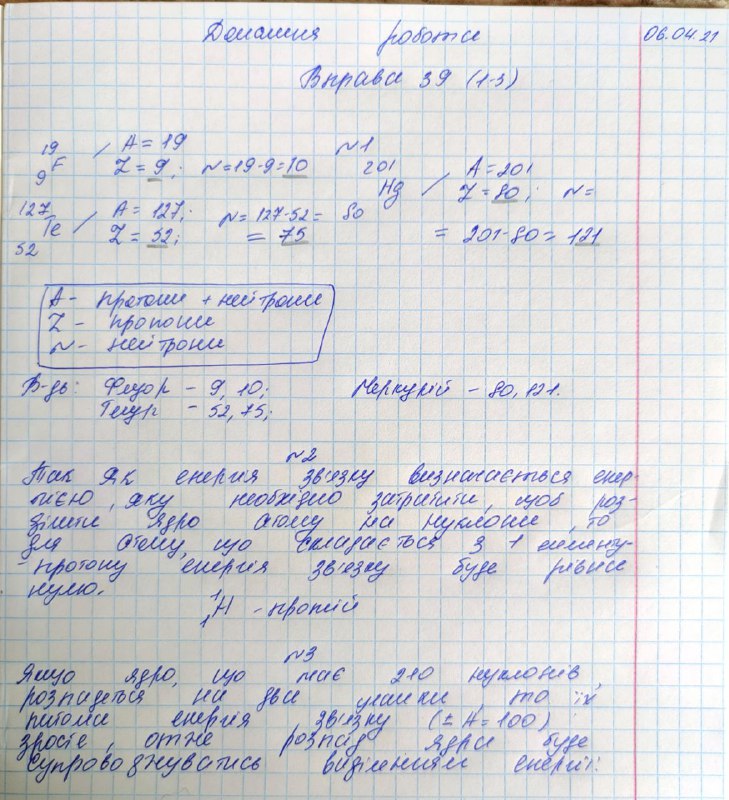 Домашня робота 06.04.21
Вправа 39 (1-3)
№1
19 9 F / A = 19 Z = 9; N=19-9=10
201 80 Hg / A = 201 Z = 80; N=
= 201-80= 121
127 52 Te / A = 127; Z = 52; N= 127-52=
= 75
A - протони + нейтрони
Z - протони
N - нейтрони
В-дь: Флуор - 9, 10; Меркурій - 80, 121.
Телур - 52, 75;
№2
Так як енергія зв'язку визначається енер-
гією, яку необхідно затратити, щоб роз-
ділити ядро атому на нуклони, то
для атому, що складається з 1 елементу
- протону енергія зв'язку буде рівна
нулю.
1 1 H - протій
№3
Якщо ядро, що має 210 нуклонів,
розпадеться на два уламки, то їх
питома енергія зв'язку (± A = 100)
зросте, отже розпад ядра буде
супроводжуватись виділенням енергії.